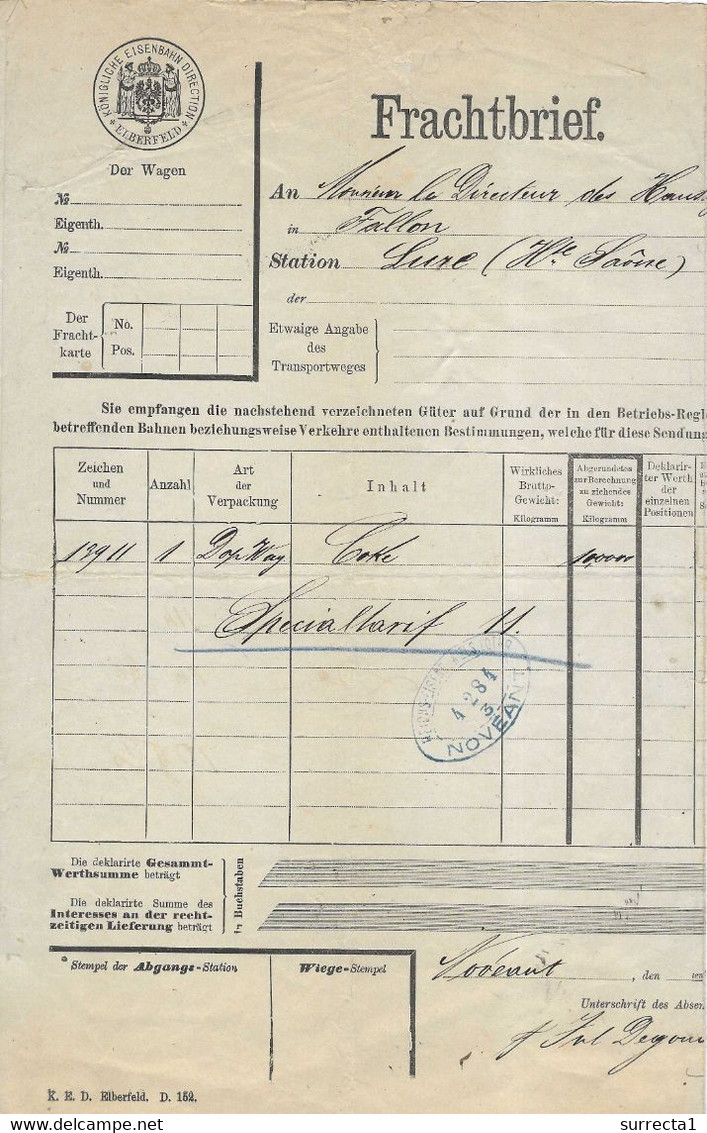 KÖNIGLICHE EISENBAHN DIRECTION
* ELBERFELD *
Der Wagen
№
Eigenth.
№
Eigenth.
Der Frachtkarte
No.
Pos.
Frachtbrief.
An Monsieur le Directeur des
in Fallon
Station Lure (Hte Saône)
der
Etwaige Angabe
des
Transportweges
Sie empfangen die nachstehend verzeichneten Güter auf Grund der in den Betriebs-Regle
betreffenden Bahnen beziehungsweise Verkehre enthaltenen Bestimmungen, welche für diese Sendung
Zeichen und Nummer
Anzahl
Art der Verpackung
Inhalt
Wirkliches Brutto-Gewicht: Kilogramm
Abgerundetes zur Berechnung zu ziehendes Gewicht: Kilogramm
Deklarirter Werth der einzelnen Positionen
13911 1 Dop Wag Coke 10,000
Specialtarif
4 2 84
NOVEANT
Die deklarirte Gesammt-
Werthsumme beträgt
Die deklarirte Summe des
Interesses an der recht-
zeitigen Lieferung beträgt
in Buchstaben
Stempel der Abgangs-Station
Wiege-Stempel
Novéant, den ten
Unterschrift des Absen
K. E. D. Elberfeld. D. 152.
delcampe.net
surrecta1